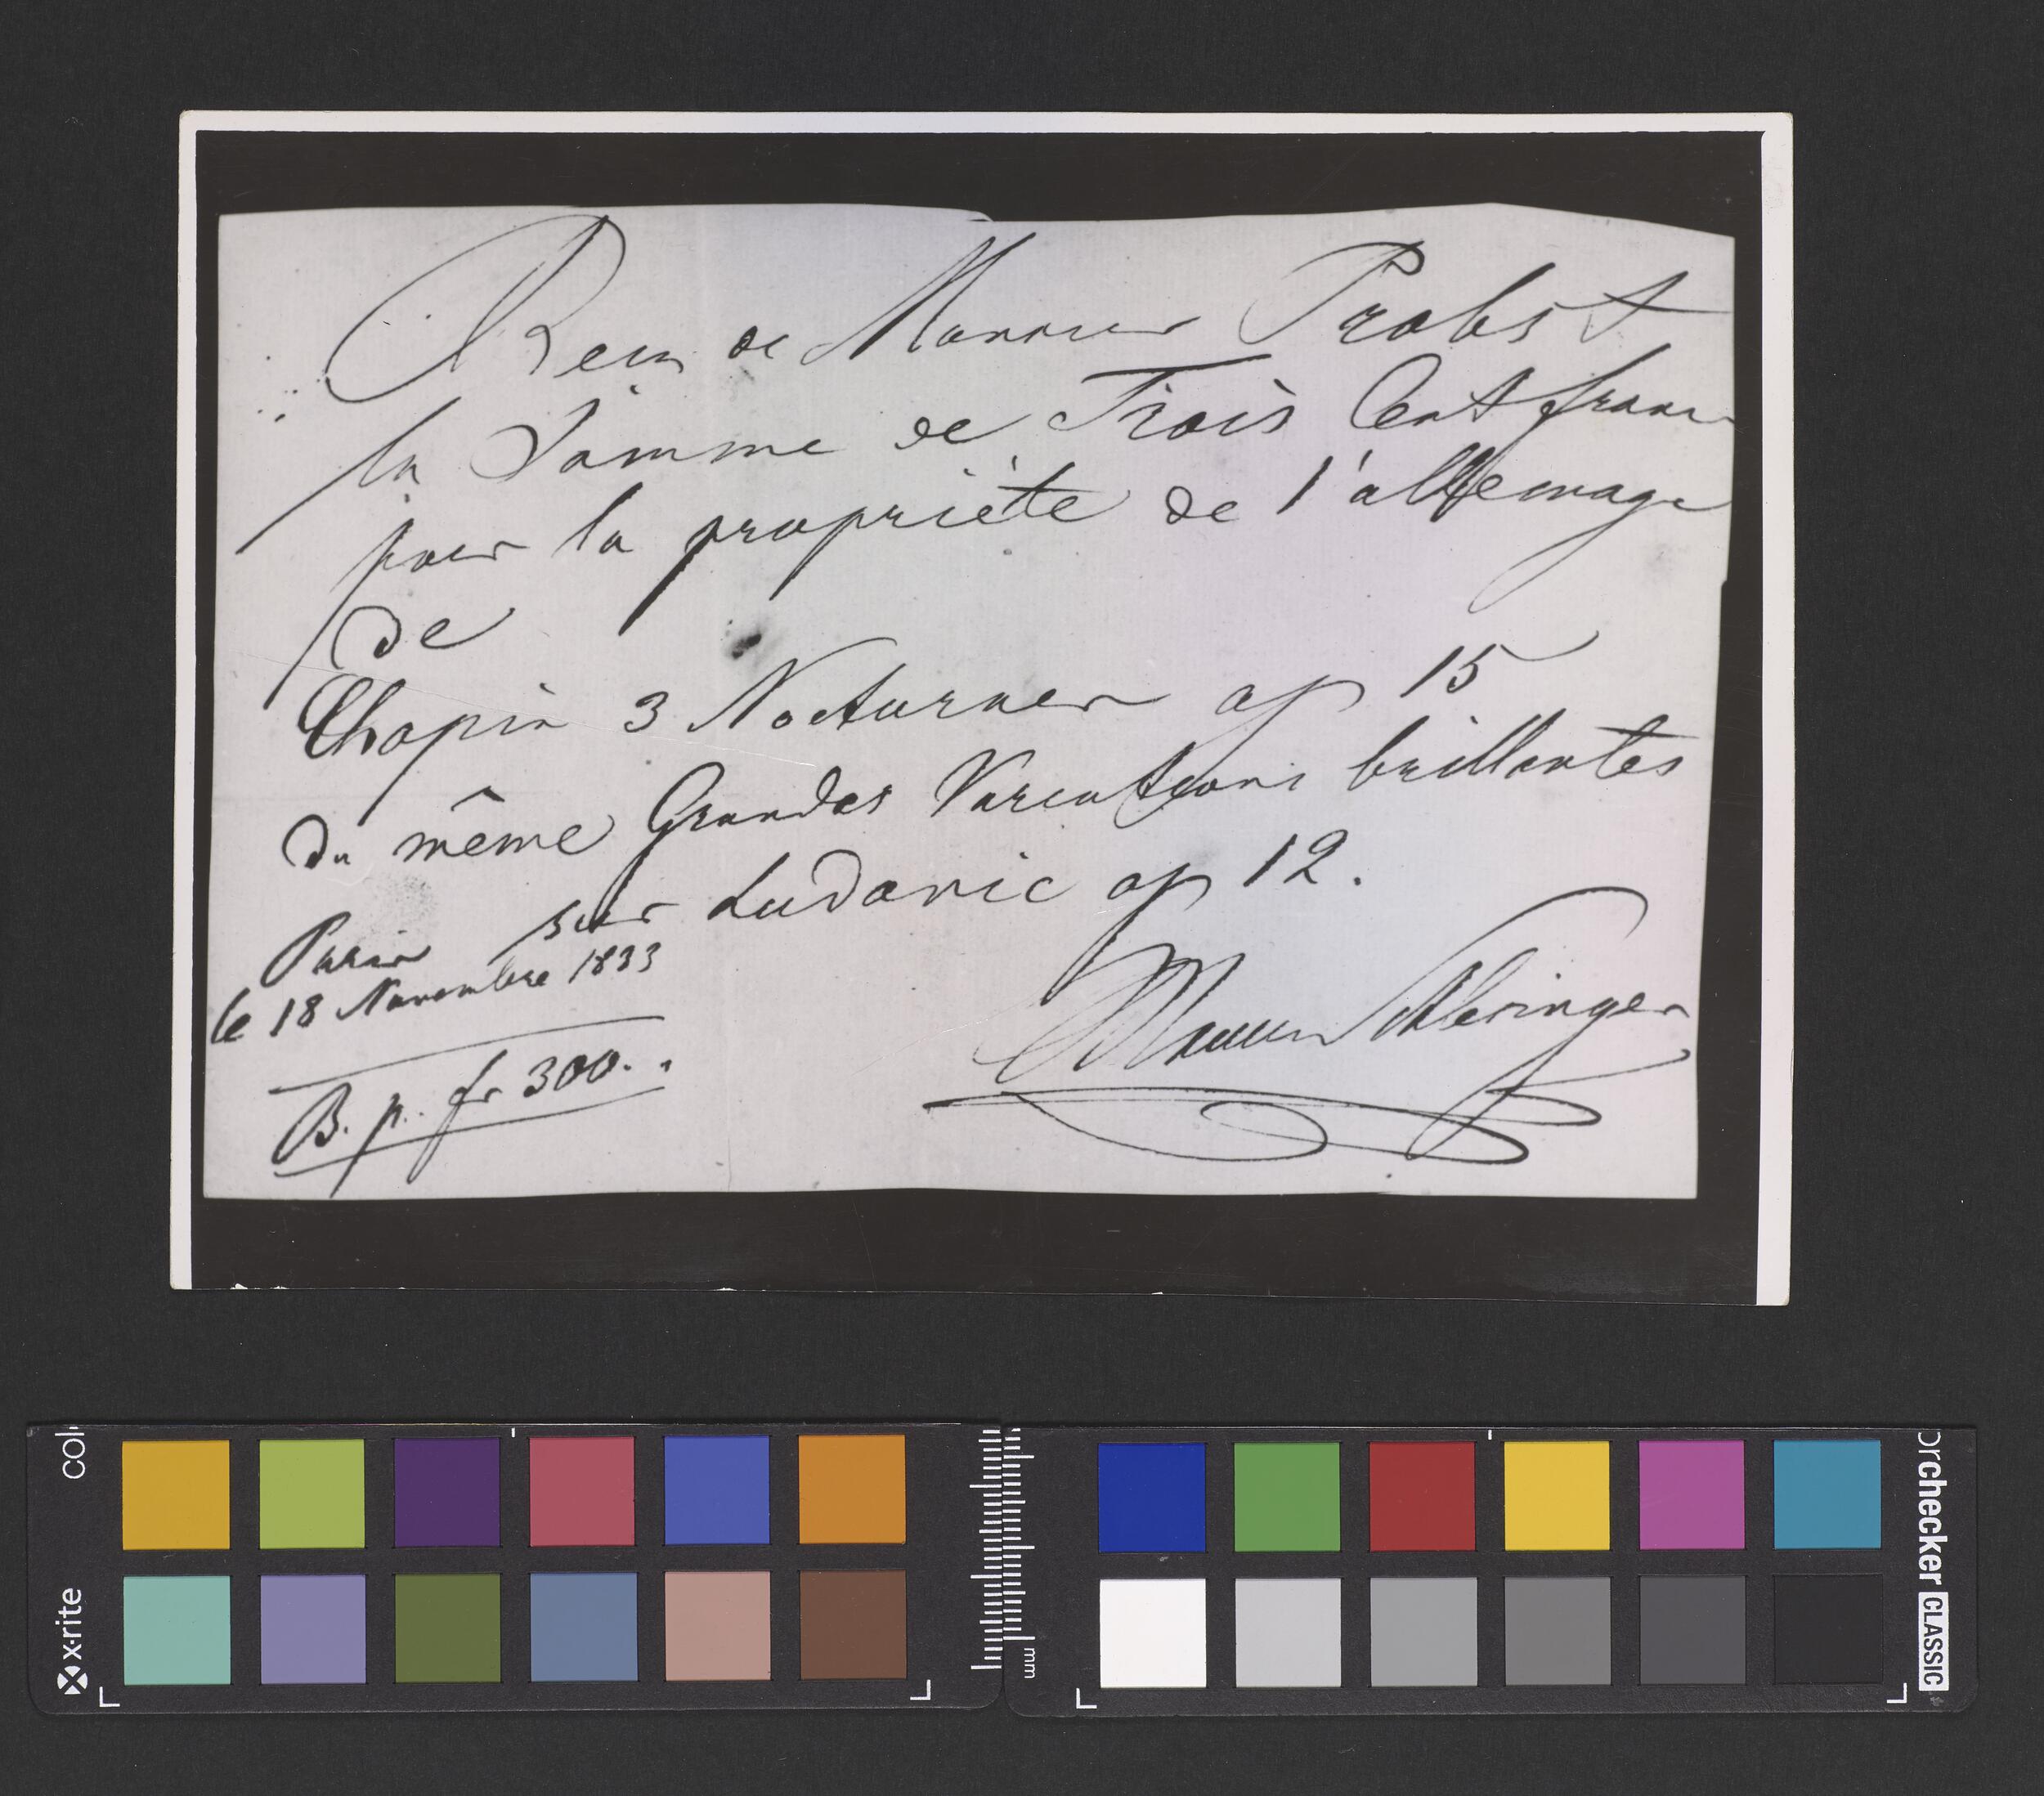 Recu de Monsieur Probst
la Somme de Trois Cent franc
pour la propriété de l'allemagne
de
Chopin 3 Nocturnes op 15
du même Grandes Variations brillantes
sur Ludovic op 12.
Paris
le 18 Novembre 1833
B. p. fr 300..
Maurice Schlesinger
x-rite
colorchecker CLASSIC
mm